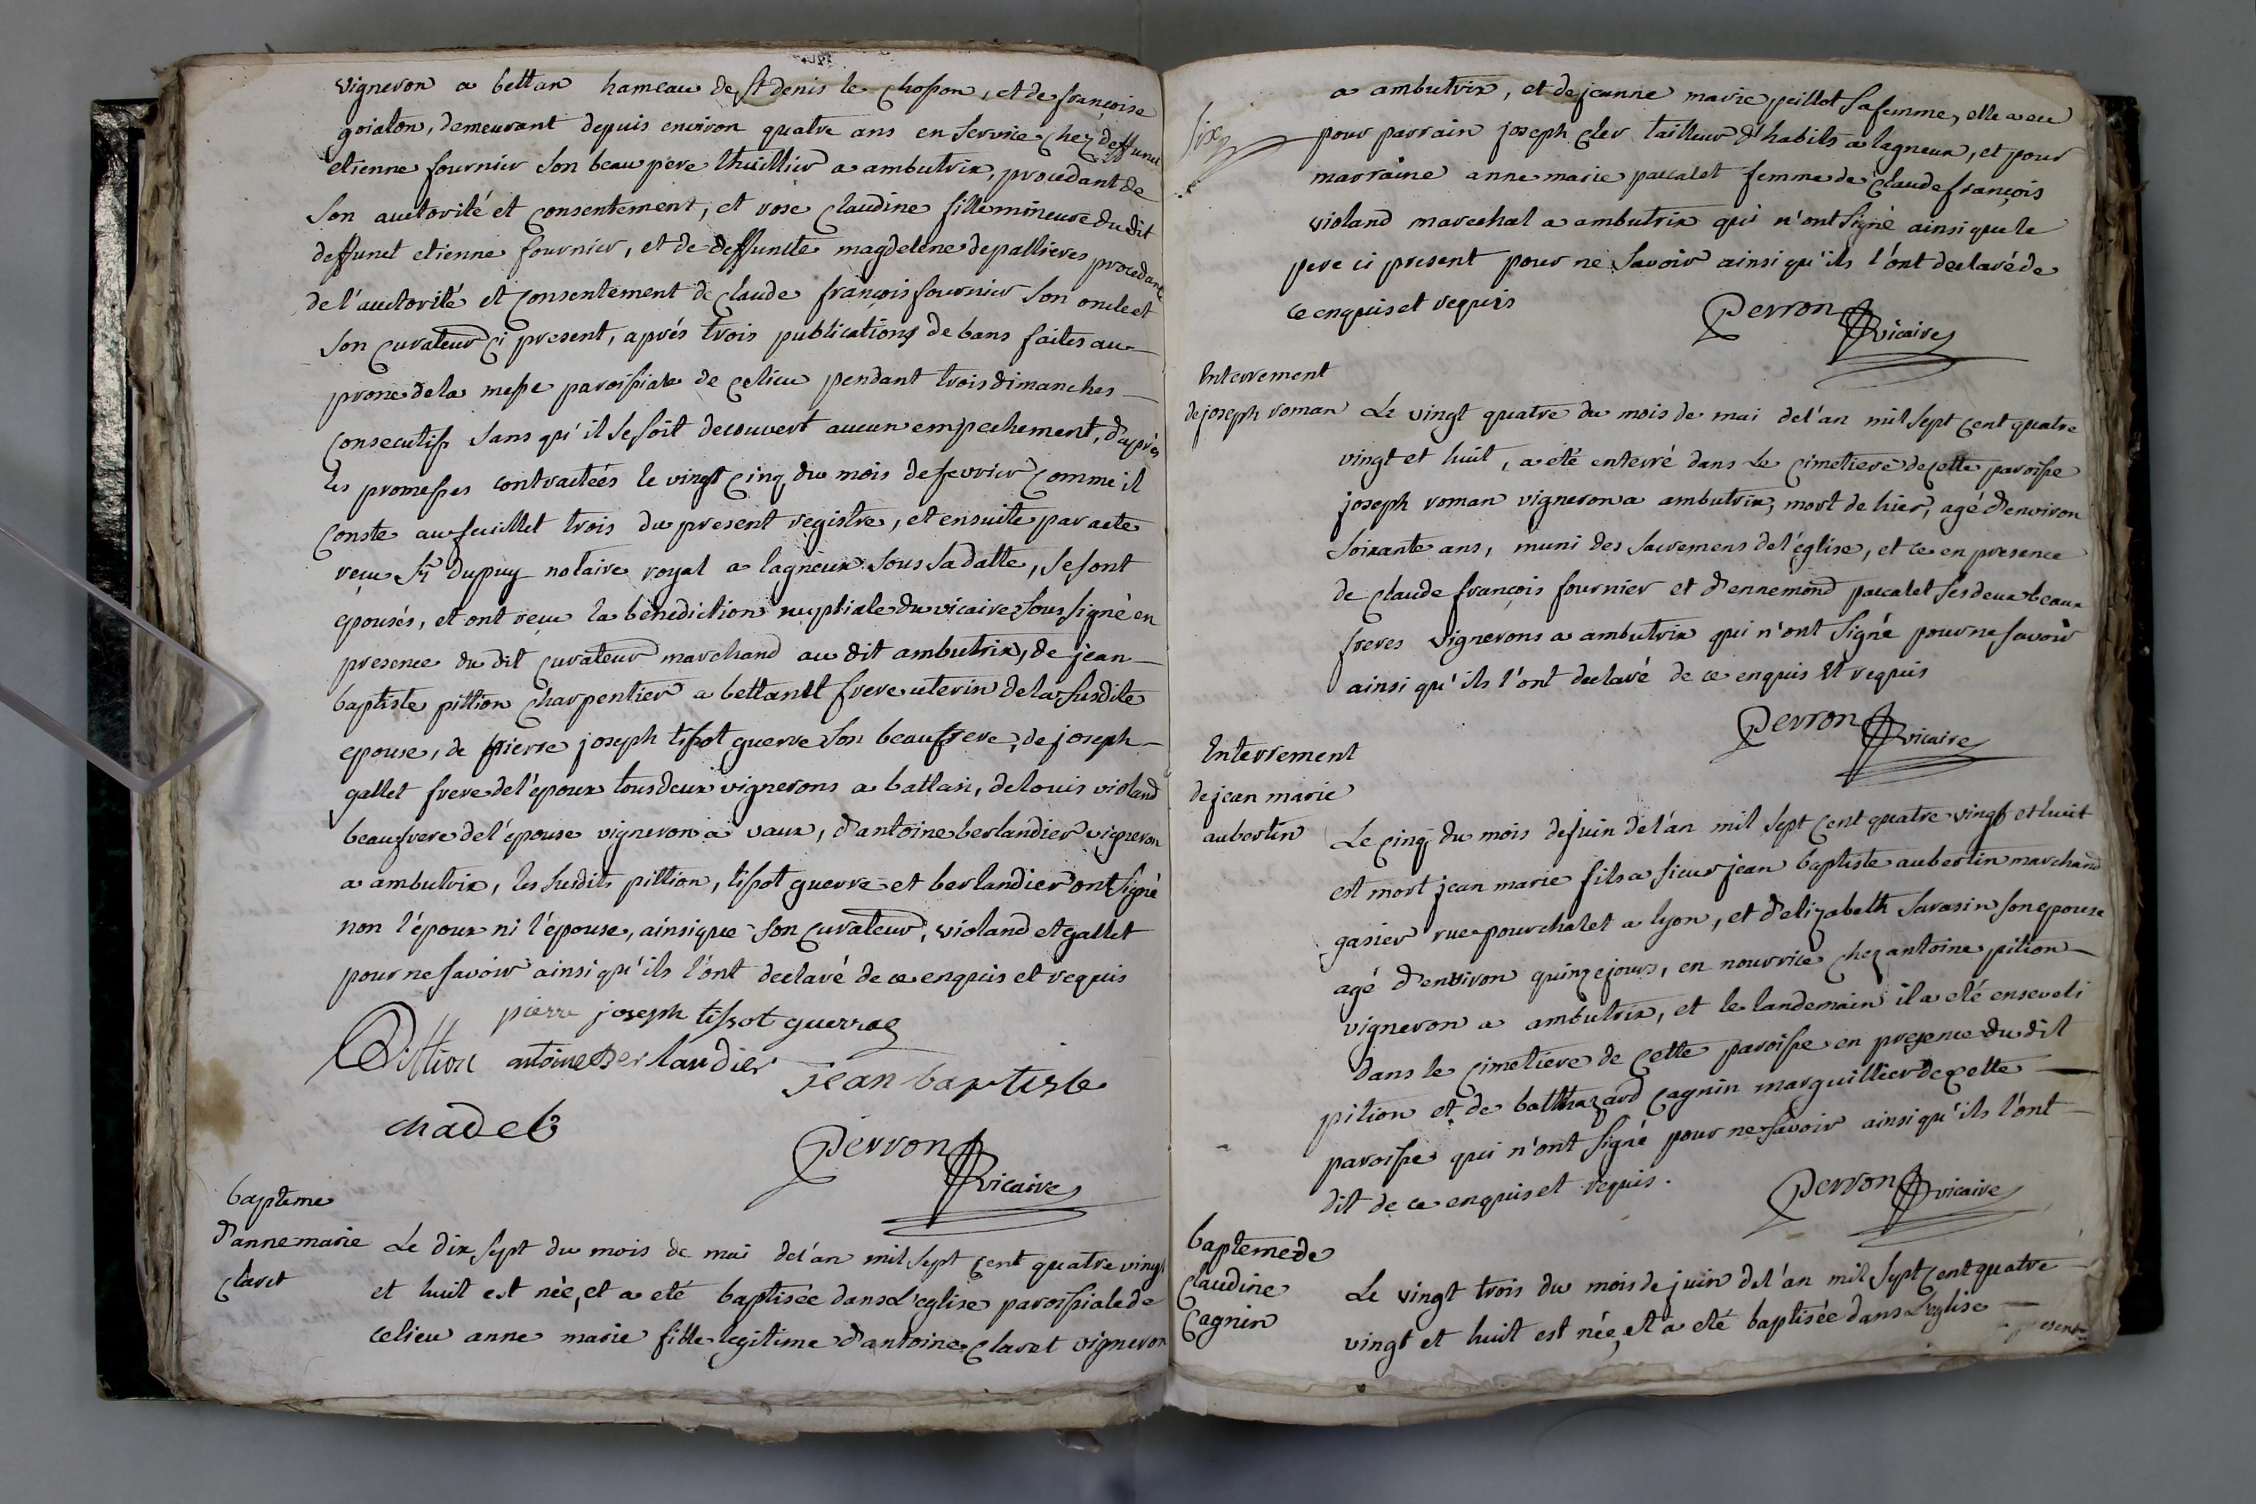 vigneron a bettan hameau de st denis le chosson, et de françoise
goiaton, demeurant depuis environ quatre ans en service chez deffunct
etienne fournier son beau pere thuillier a ambutrix, procedant de
son auctorité et consentement, et rose claudine fille mineure du dit
deffunct etienne fournier, et de deffuncte magdelene depallieres procedante
de l'auctorité et consentement de claude françois fournier son oncle et
son curateur ci present, aprés trois publications de bans faites au
prone de la messe paroissiale de ce lieu pendant trois dimanches
consecutifs sans qu'il se soit decouvert aucun empechement, d'aprés
les promesses contractées le vingt cinq du mois de fevrier comme il
conste au feuillet trois du present registre, et ensuite par acte
reçu Sr dupuy notaire royal a lagnieux sous sa datte, se sont
epousés, et ont reçu la bénédiction nuptiale du vicaire sous signé en
presence du dit curateur marchand au dit ambutrix, de jean
baptiste pittion charpentier a bettantt frere uterin de la susdite
epouse, de pierre joseph tissot guerre son beaufrere, de joseph
gallet frere de l'époux tous deux vignerons a battan, de louis violand
beaufrere de l'épouse vigneron a vaux, d'antoine berlandier vigneron
a ambutrix, les susdits pittion, tissot guerre et berlandier ont signé
non l'époux ni l'épouse, ainsi que son curateur, violand et gallet
pour ne savoir ainsi qu'ils l'ont declaré de ce enquis et requis
pierre joseph tissot guerre
Pittion antoine Berlandier jean baptiste
chadel
Perron vicaire
baptême
d'anne marie
claret
Le dix sept du mois de mai de l'an mil sept cent quatre vingt
et huit est née, et a eté baptisée dans l'eglise paroissiale de
ce lieu anne marie fille legitime d'antoine claret vigneron
six
a ambutrix, et de jeanne marie peillot sa femme, elle a eu
pour parrain joseph cler tailleur d'habits a lagneux, et pour
marraine anne marie paccalet femme de claude françois
violand marechal a ambutrix qui n'ont signé ainsi que le
pere ci present pour ne savoir ainsi qu'ils l'ont declaré de
ce enquis et requis
Perron vicaire
Enterrement
de joseph roman
Le vingt quatre du mois de mai de l'an mil sept cent quatre
vingt et huit, a été enterré dans le cimetiere de cette paroisse
joseph roman vigneron a ambutrix, mort de hier, agé d'environ
soixante ans, muni des sacremens de l'église, et ce en presence
de claude françois fournier et d'ennemond paccalet ses deux beaux
freres vignerons a ambutrix qui n'ont signé pour ne savoir
ainsi qu'ils l'ont declaré de ce enquis et requis
Perron vicaire
Enterrement
de jean marie
aubertin
Le cinq du mois de juin de l'an mil sept cent quatre vingt et huit
est mort jean marie fils a sieur jean baptiste aubertin marchand
gasier rue pourchalet a lyon, et d'elizabeth sarasin son epouse
agé d'environ quinze jours, en nourrice chez antoine pition
vigneron a ambutrix, et le landemain il a eté enseveli
dans le cimetiere de cette paroisse en presence du dit
pition et de balthazard cagnin marguillier de cette
paroisse qui n'ont signé pour ne savoir ainsi qu'ils l'ont
dit de ce enquis et requis.
Perron vicaire
baptême de
claudine
cagnin
Le vingt trois du mois de juin de l'an mil sept cent quatre
vingt et huit est née, et a eté baptisée dans l'eglise